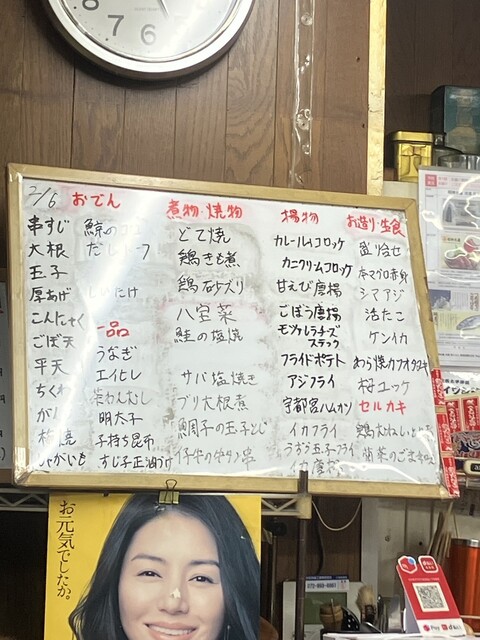 8 7 6
2/6 おでん
串すじ
大根
玉子
厚あげ
こんにゃく
ごぼ天
平天
ちくわ
じゃがいも
鯨のコロ
しいたけ
一品
うなぎ
エイヒレ
茶わんむし
明太子
子持ち昆布
すじ子正油づけ
煮物・焼物
どて焼
鶏きも煮
鶏砂ズリ
八宝菜
鮭の塩焼
サバ塩焼き
ブリ大根煮
鯛子の玉子とじ
揚物
カレールコロッケ
カニクリームコロッケ
甘えび唐揚
ごぼう唐揚
モッツァレラチーズ
スティック
フライドポテト
アジフライ
宇都宮ハムカツ
イカフライ
うずら玉子フライ
イカ唐揚
お造り・生食
盛り合せ
本マグロ赤身
シマアジ
活たこ
ケンイカ
わら焼カツオタタキ
桜ユッケ
セルカキ
菊菜のごま和え
お元気でしたか。